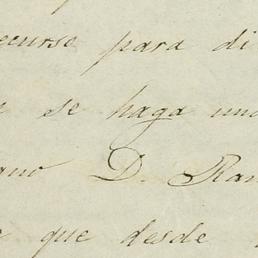 ecurso para di
se haga un
ano D. Ram
e que desde